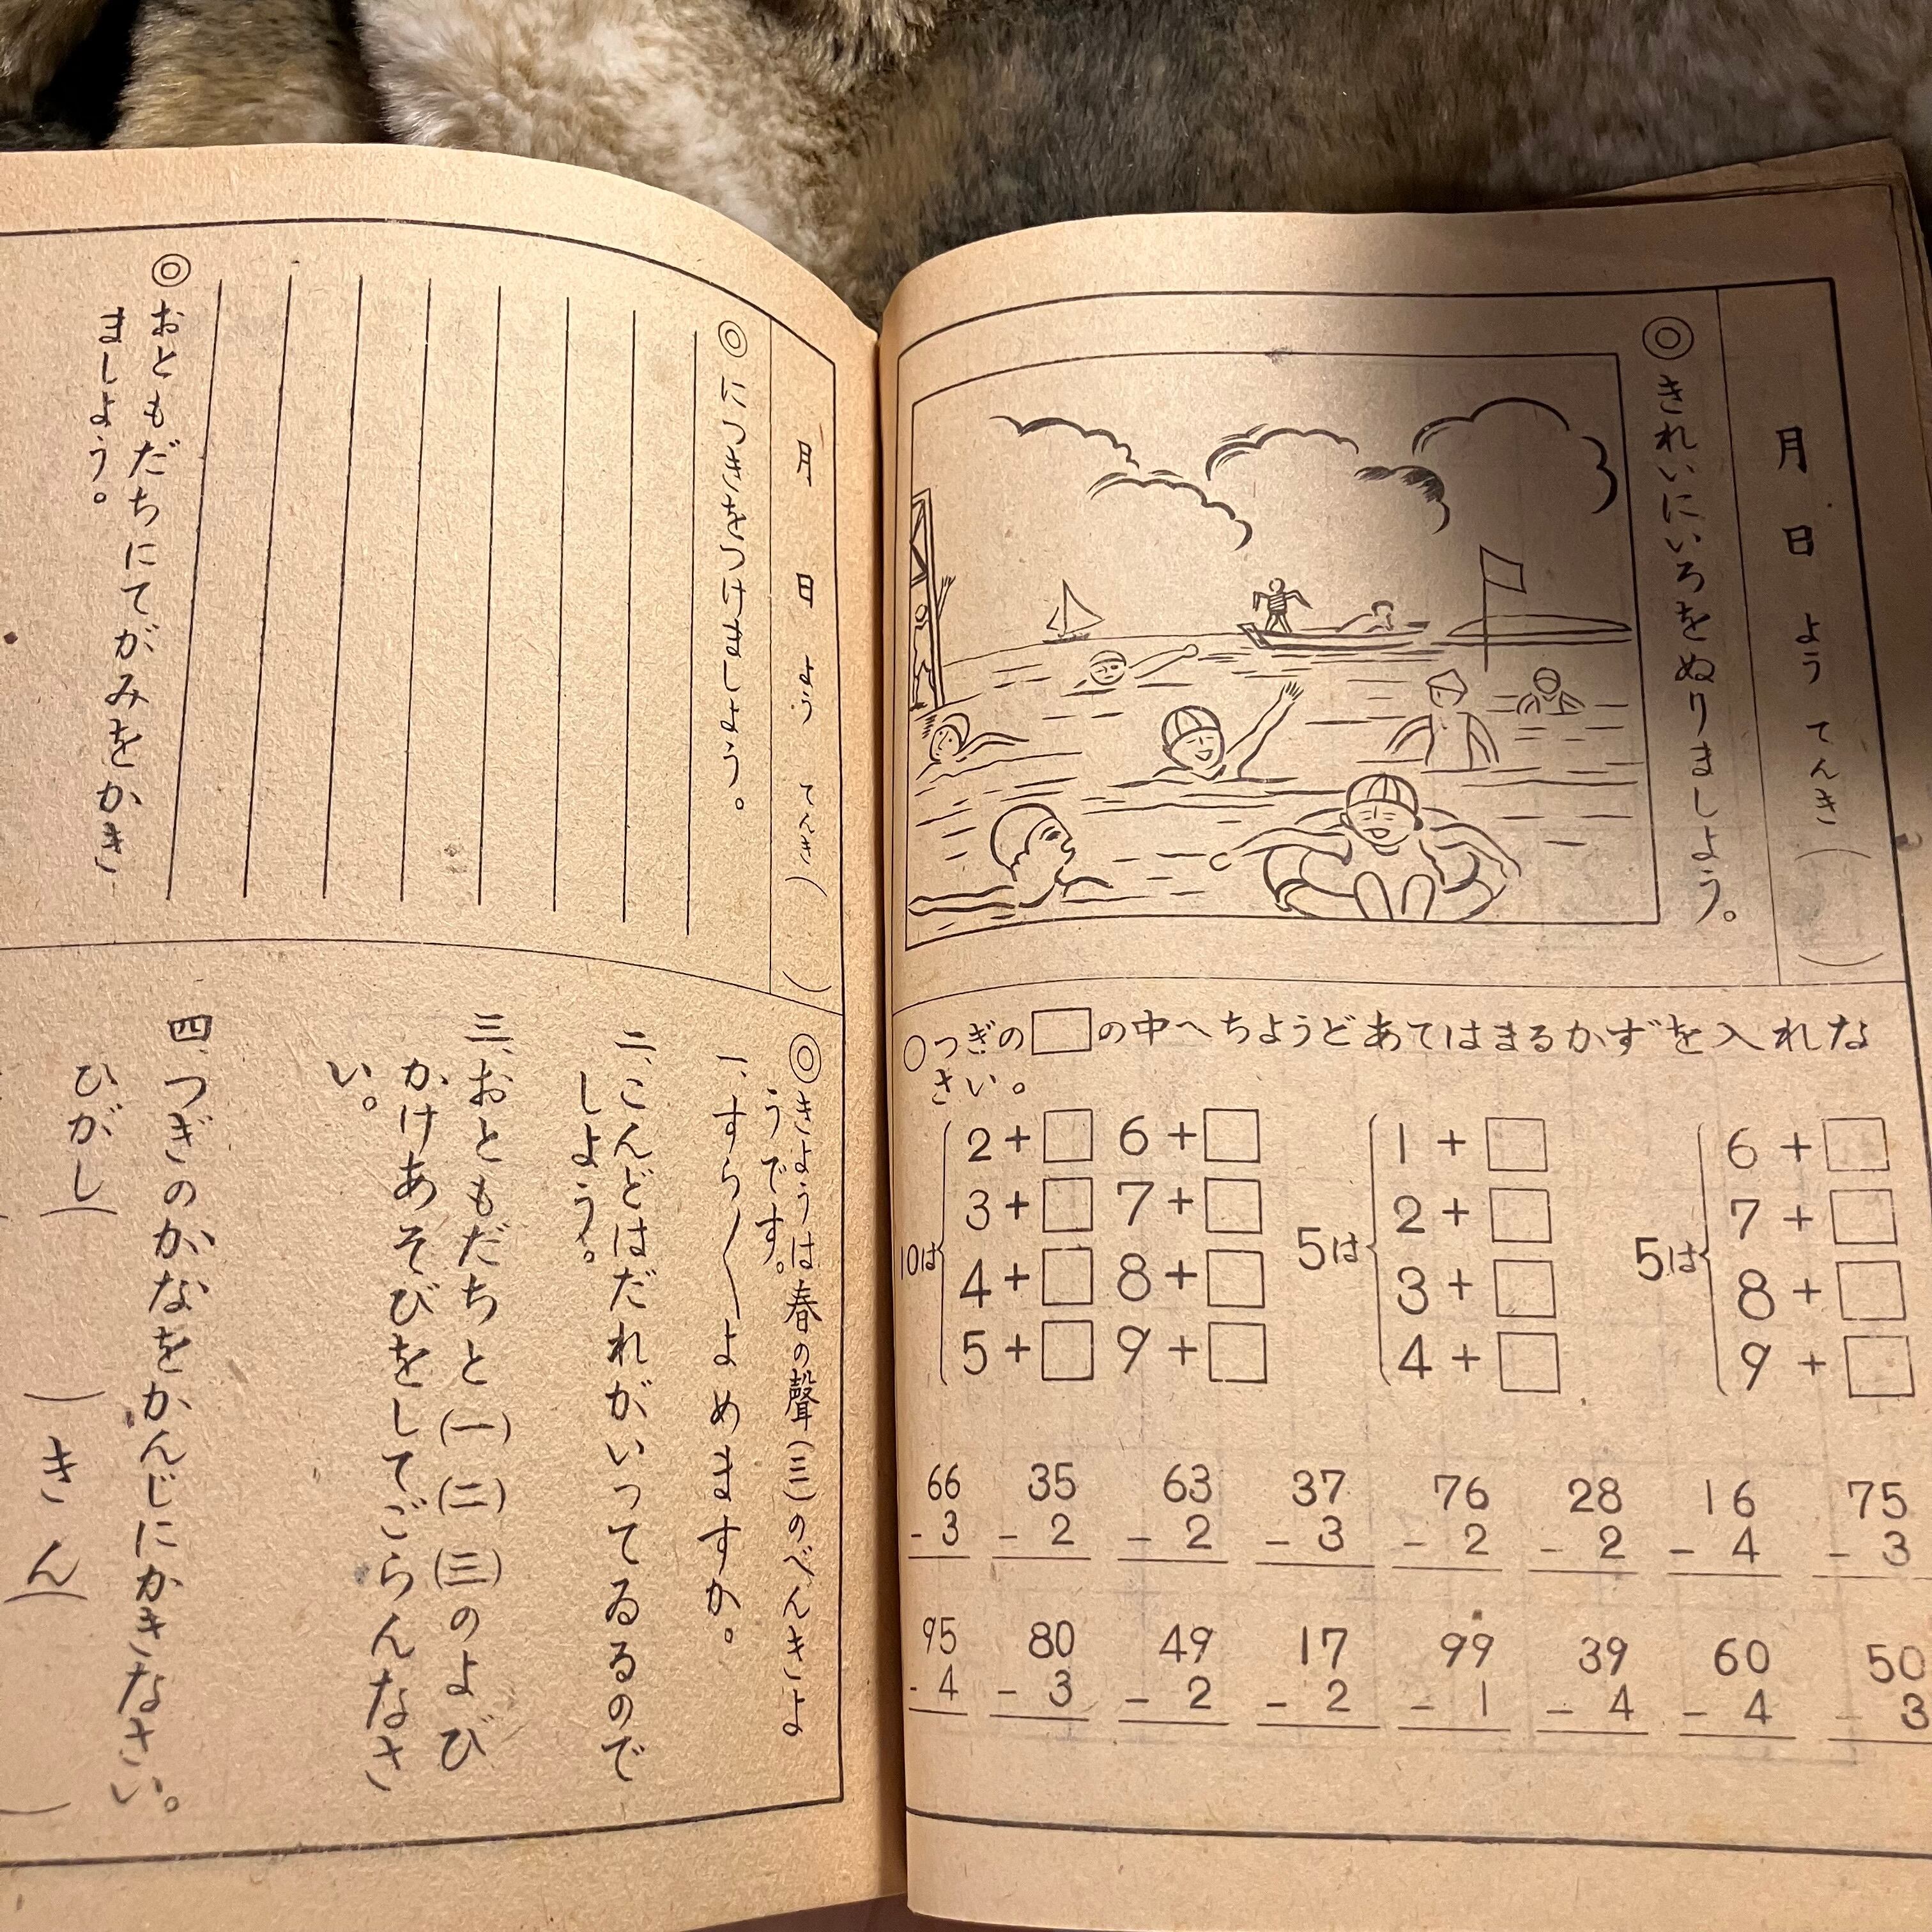 月 日 よう てんき( )
◎きれいにいろをぬりましよう。
○つぎの□の中へちようどあてはまるかずを入れな
さい。
10は
2+□ 6+□
3+□ 7+□
4+□ 8+□
5+□ 9+□
5は
1+□
2+□
3+□
4+□
5は
6+□
7+□
8+□
9+□
66 35 63 37 76 28 16 75
-3 -2 -2 -3 -2 -2 -4 -3
95 80 49 17 99 39 60 50
-4 -3 -2 -2 -1 -4 -4 -3
月 日 よう てんき( )
◎につきをつけましよう。
◎おともだちにてがみをかき
ましよう。
◎きようは春の聲(三)のべんきよ
うです。
一、すら〱よめますか。
二、こんどはだれがいってゐるので
しよう。
三、おともだちと(一)(二)(三)のよび
かけあそびをしてごらんなさ
い。
四、つぎのかなをかんじにかきなさい。
ひがし( )きん( )